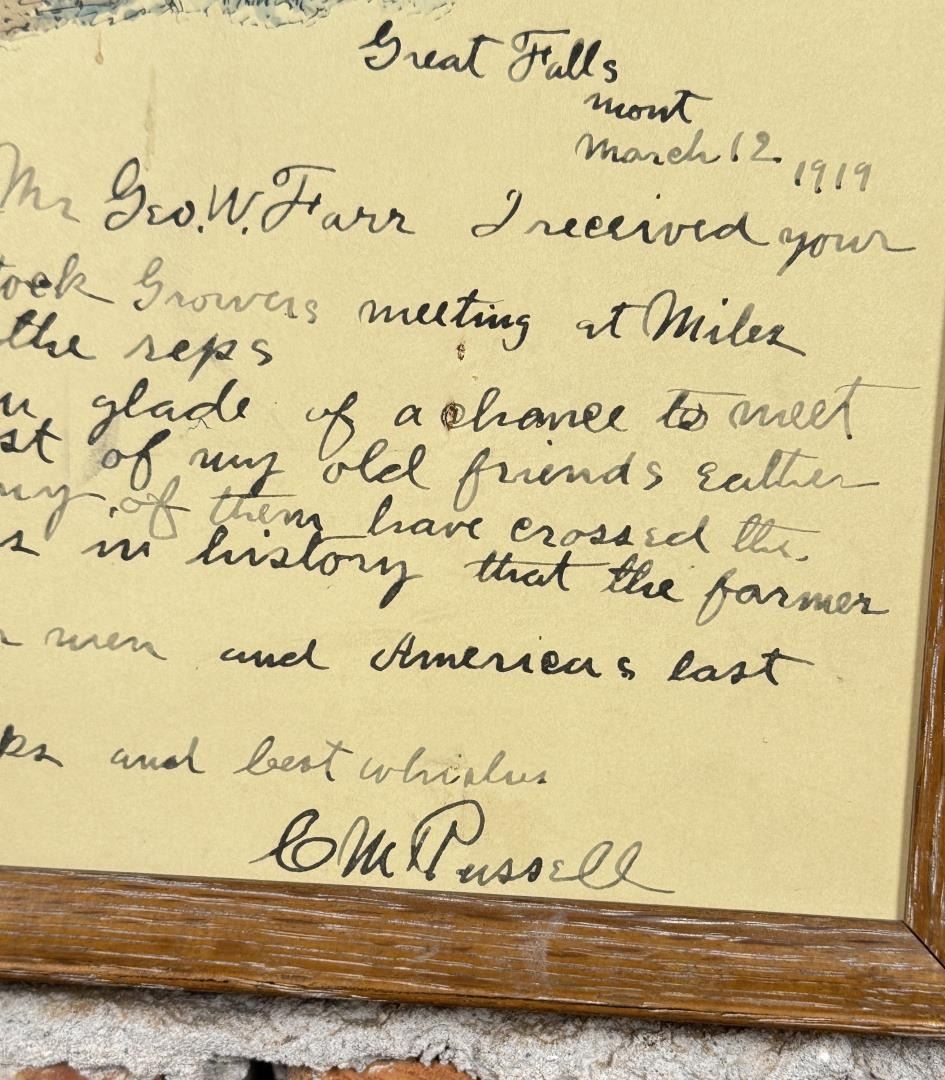 Great Falls
mont
march 12. 1919
Mr Geo. W. Farr I received your
tock Growers meeting at Miles
the reps
glade of a chance to meet
st of my old friends eather
ny of them have crossed the.
s in history that the farmer
men and Americas last
ps and best whishes
C M Russell